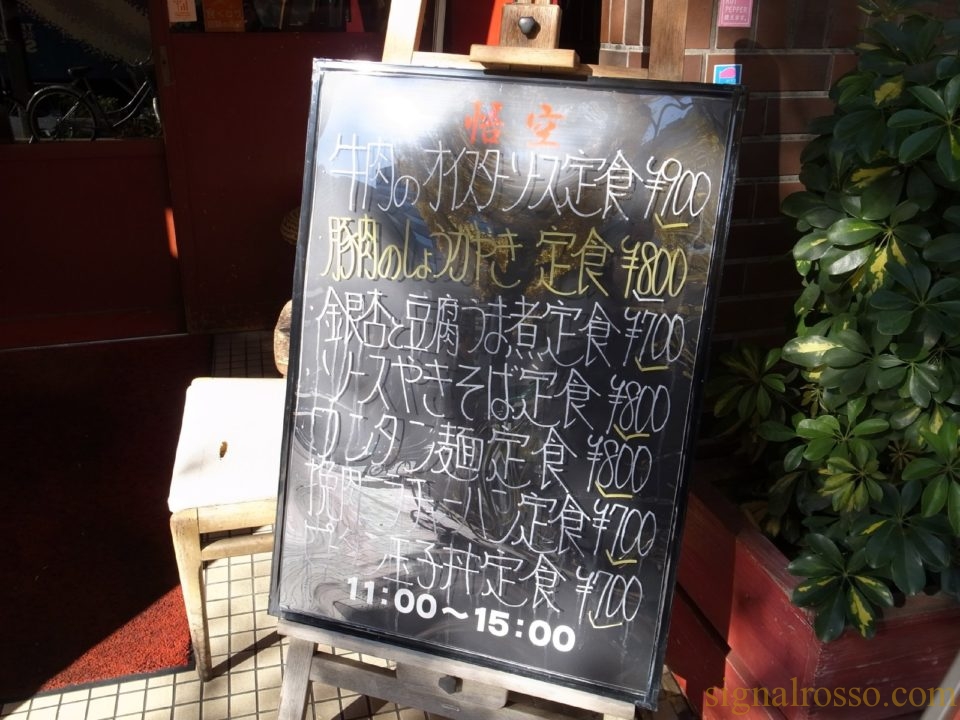 悟空
牛肉のオイスターソース定食 ¥900
豚肉のしょうがやき 定食 ¥800
銀杏と豆腐うま煮定食 ¥700
ソースやきそば定食 ¥800
ワンタン麺定食 ¥800
挽肉チャーハン定食 ¥700
玉子丼定食 ¥700
11:00～15:00
HOT PEPPER
signalrosso.com